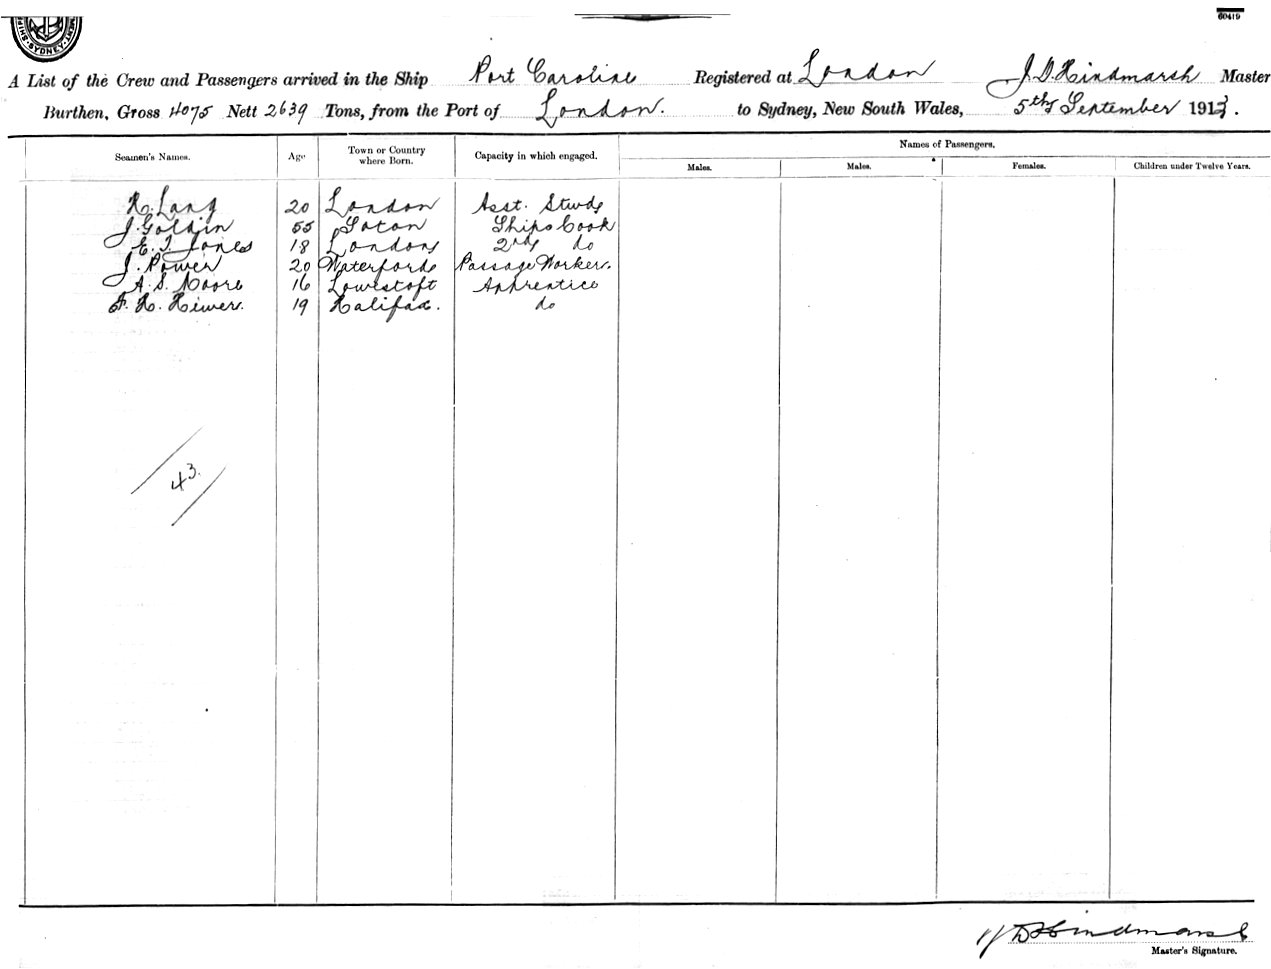 60419
SHIP SYDNEY MENT
A List of the Crew and Passengers arrived in the Ship Port Caroline Registered at London J. D. Hindmarsh Master
Burthen, Gross 4075 Nett 2639 Tons, from the Port of London. to Sydney, New South Wales, 5th September 1913.
Seamen's Names. Age Town or Country where Born. Capacity in which engaged. Names of Passengers.
Males. Males. Females. Children under Twelve Years.
H. Lang 20 London Asst. Stwd
J. Goldin 55 Soton Ships Cook
E. T. Jones 18 London 2nd do
J. Power 20 Waterford Passage Worker.
A. S. Moore 16 Lowestoft Apprentice
F. H. Hewer. 19 Halifax. do
43.
J D Hindmarsh
Master's Signature.